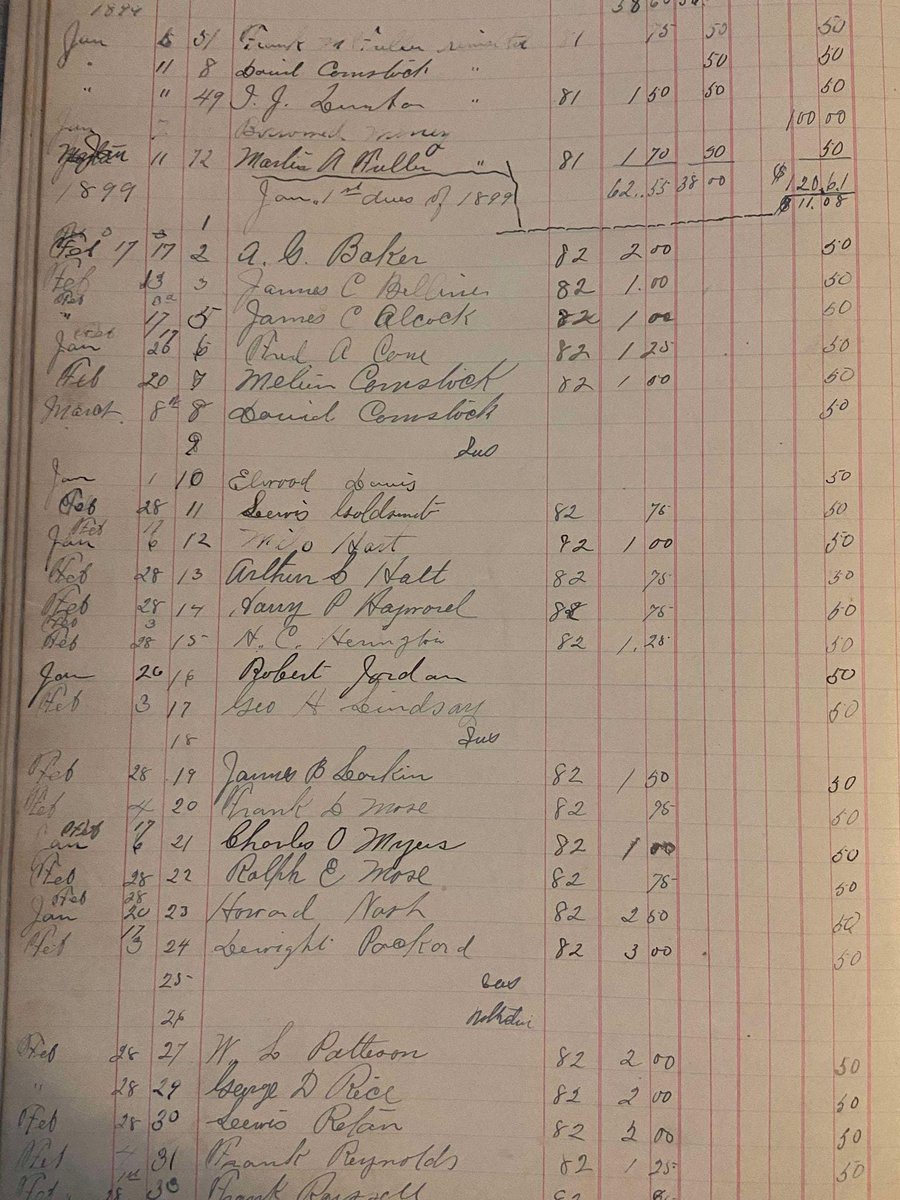 Jan 5 51 Frank Fuller 81 75 50 50
" 11 8 David Comstock " 50 50
" " 49 " 81 1 50 50 50
Jan Borrowed Money 100 00
11 72 Martin A Fuller " 81 1 70 50 50
1899 Jan. 1st dues of 1899 62..55 38 00 $120.61
$11.08
1
Feb 17 17 2 A. G. Baker 82 2 00 50
Feb 13 3 James C 82 1.00 50
" 17 5 James C Alcock 82 1 00 50
Jan 26 6 Fred A Cone 82 1 25 50
Feb 20 7 Melvin Comstock 82 1 00 50
March 8th 8 David Comstock 50
9 Sus
Jan 1 10 Elwood Davis 50
Feb 28 11 Lewis Goldsmith 82 75 50
Feb 17
Jan 6 12 Milo Hart 82 1 00 50
Feb 28 13 Arthur S Halt 82 75 50
Feb 28 14 Harry P Hayward 82 75 50
Feb 28 15 H. C. Herington 82 1.25 50
Jan 20 16 Robert Jordan 50
Feb 3 17 Geo H Lindsay 50
18 Sus
Feb 28 19 James B Larkin 82 1 50 50
Feb 4 20 Frank L Mose 82 75 50
Feb 17
Jan 6 21 Charles O Myers 82 1 00 50
Feb 28 22 Ralph E Mose 82 75 50
Feb 28
Jan 20 23 Howard Nash 82 2 50 50
17
Feb 3 24 Dewight Packard 82 3 00 50
25 Sus
26
Feb 28 27 W. L Patterson 82 2 00 50
" 28 29 George D Rice 82 2 00 50
Feb 28 30 Lewis Retan 82 2 00 50
Feb 4 31 Frank Reynolds 82 1 25 50
28 Frank Russell 82